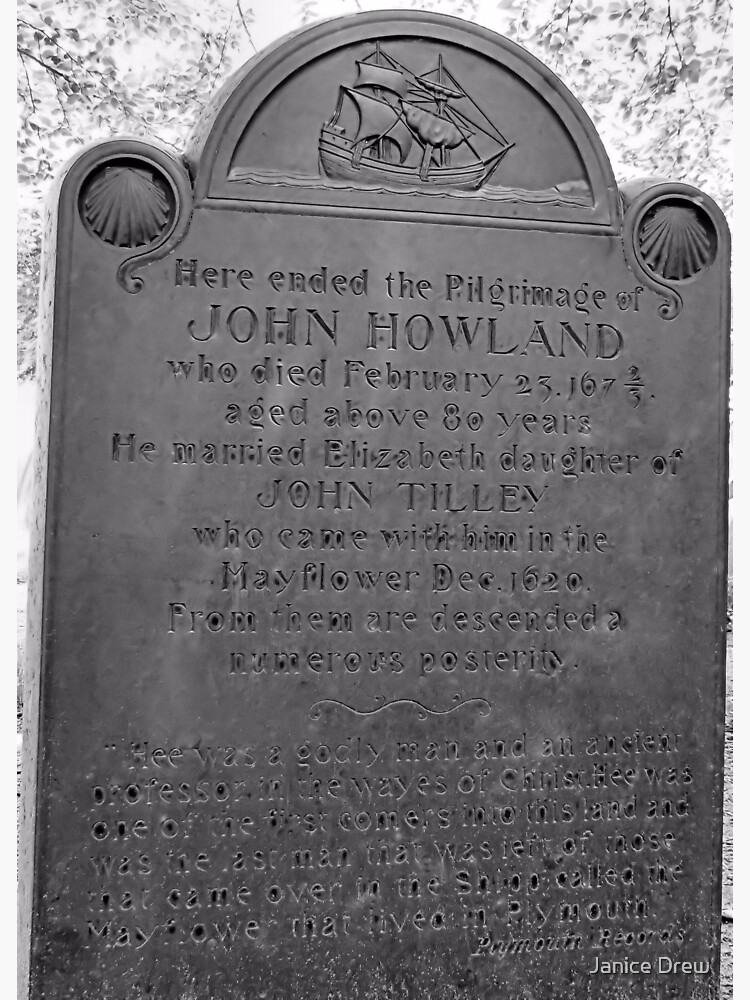 Here ended the Pilgrimage of
JOHN HOWLAND
who died February 23. 167 2/3.
aged above 80 years
He married Elizabeth daughter of
JOHN TILLEY
who came with him in the
Mayflower Dec. 1620.
From them are descended a
numerous posterity.
"Hee was a godly man and an ancient
professor in the wayes of Christ. Hee was
one of the first comers into this land and
was the last man that was left of those
that came over in the Shipp called the
Mayflower that lived in Plymouth.
Plymouth Records
Janice Drew